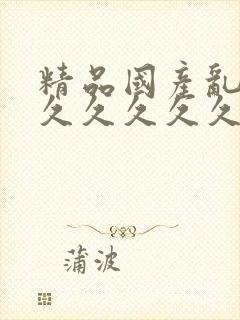 精品國產亂
久久久久久
蒲波